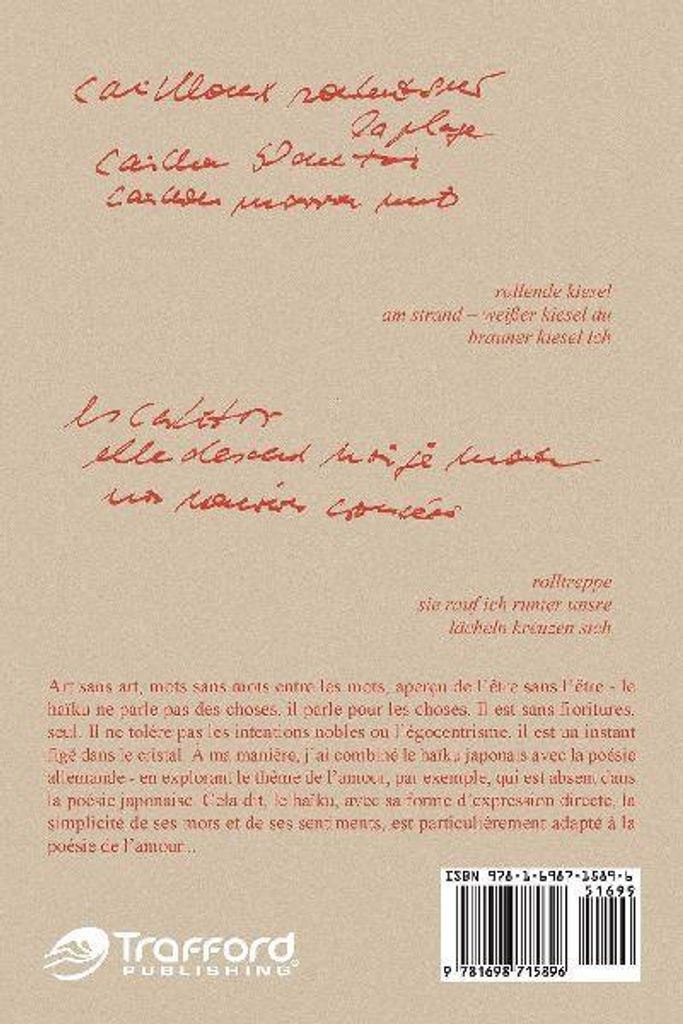 cailloux roulant sur
la plage
caillou blanc toi
caillou marron moi
rollende kiesel
am strand – weißer kiesel du
brauner kiesel ich
escalator
elle descend moi je monte
nos sourires croisés
rolltreppe
sie rauf ich runter unsre
lächeln kreuzen sich
Art sans art, mots sans mots entre les mots, aperçu de l'être sans l'être - le
haïku ne parle pas des choses, il parle pour les choses. Il est sans fioritures,
seul. Il ne tolère pas les intentions nobles ou l'égocentrisme, il est un instant
figé dans le cristal. À ma manière, j'ai combiné le haïku japonais avec la poésie
allemande - en explorant le thème de l'amour, par exemple, qui est absent dans
la poésie japonaise. Cela dit, le haïku, avec sa forme d'expression directe, la
simplicité de ses mots et de ses sentiments, est particulièrement adapté à la
poésie de l'amour...
ISBN 978-1-6987-1589-6
51699
9 781698 715896
Trafford
PUBLISHING®